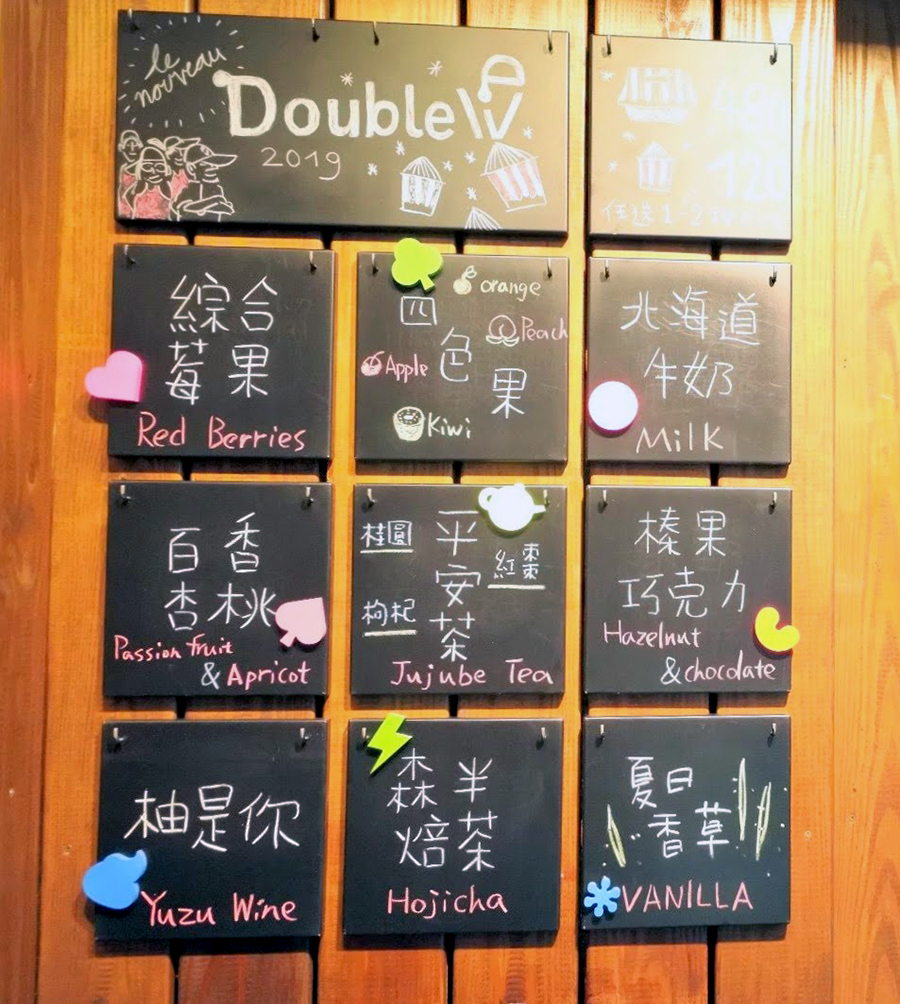 le
nouveau
DoubleV
2019
任選1-2
綜合
莓果
Red Berries
orange
四
Peach
色
Apple
果
Kiwi
北海道
牛奶
Milk
百香
杏桃
Passion fruit
& Apricot
桂圓
平
紅棗
安
枸杞
茶
Jujube Tea
榛果
巧克力
Hazelnut
& chocolate
柚是你
Yuzu Wine
森半
焙茶
Hojicha
夏日
香草
VANILLA